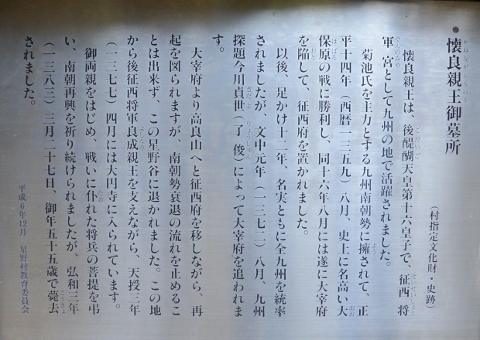 懐良親王御墓所
(村指定文化財・史跡)
懐良親王は、後醍醐天皇第十六皇子で、征西将
軍宮として九州の地で活躍されました。
菊池氏を主力とする九州南朝勢に擁されて、正
平十四年(西暦一三五九)八月、史上に名高い大
保原の戦に勝利し、同十六年八月には遂に大宰府
を陥して、征西府を置かれました。
以後、足かけ十二年、名実ともに全九州を統率
されましたが、文中元年(一三七二)八月、九州
探題今川貞世(了俊)によって大宰府を追われま
す。
大宰府より高良山へと征西府を移しながら、再
起を図られますが、南朝勢衰退の流れを止めるこ
とは出来ず、この星野谷に退かれました。この地
から後征西将軍良成親王を支えながら、天授三年
(一三七七)四月には大円寺に入られています。
御両親をはじめ、戦いに仆れた将兵の菩提を弔
い、南朝再興を祈り続けられましたが、弘和三年
(一三八三)三月二十七日、御年五十五歳で薨去
されました。
平成6年12月 星野村教育委員会